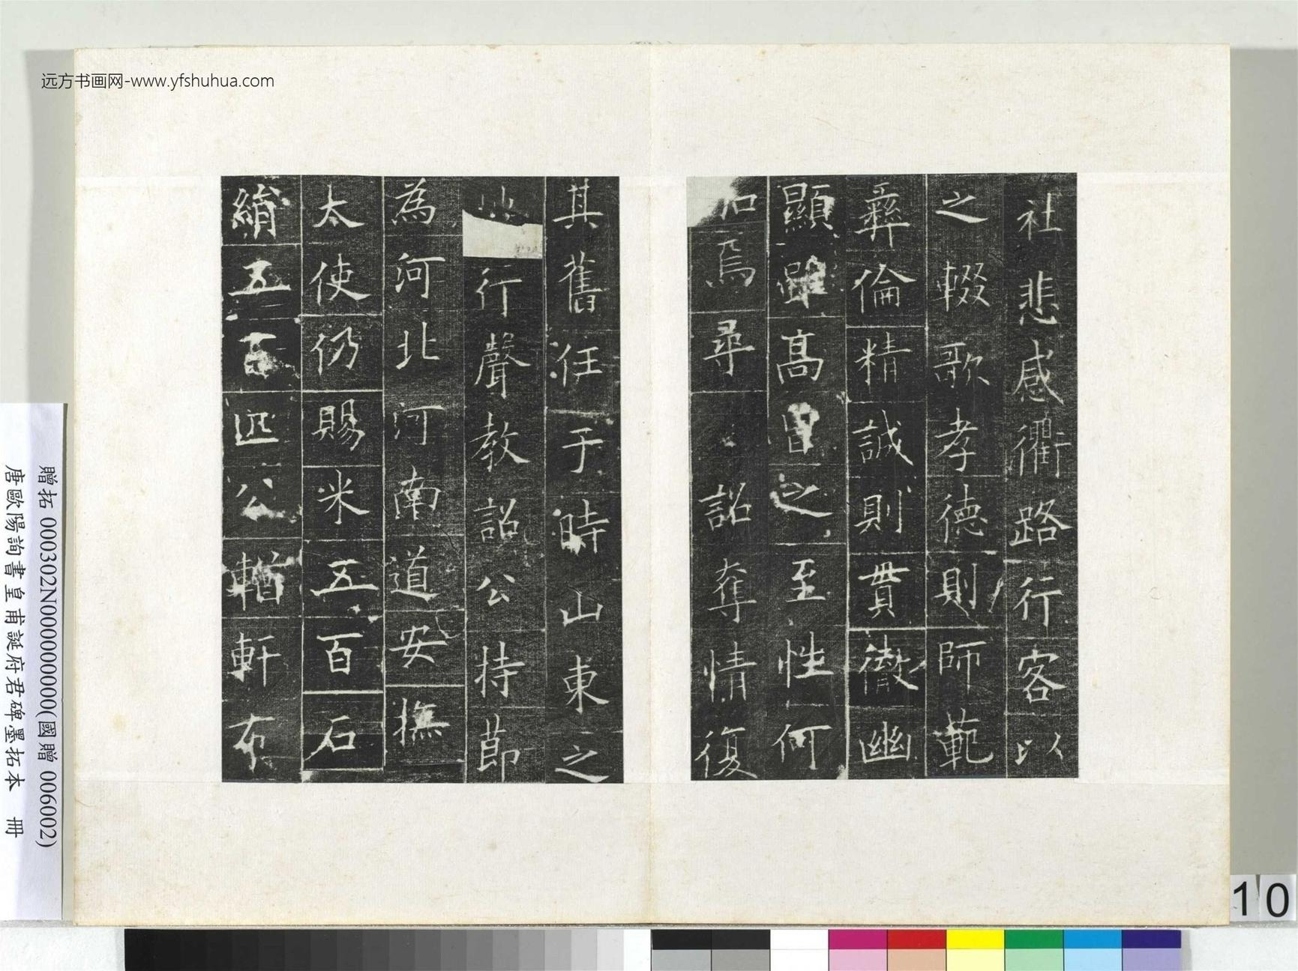 远方书画网-www.yfshuhua.com
社悲感衢路行客以
之輟歌孝德則師範
彝倫精誠則貫徹幽
顯雖高曾之至性何
加焉尋詔奪情復
其舊任于時山東之
行聲教詔公持節
為河北河南道安撫
太使仍賜米五百石
絹五百匹公輶軒布
贈拓 000302N000000000(國贈 006002)
唐歐陽詢書皇甫誕府君碑墨拓本 冊
10